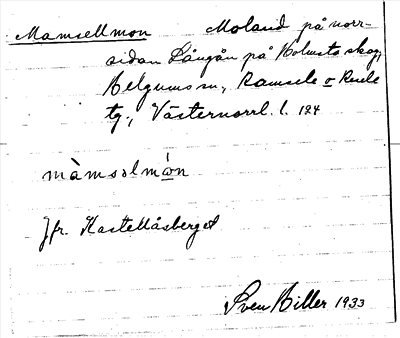 Mamsellmon Moland på norr-
sidan Långån på Holmsta skog,
Helgums sn, Ramsele o Resele
tg., Västernorrl. l. 124
màmsəlmón
Jfr. Kastellåsberget
Sven Hiller 1933